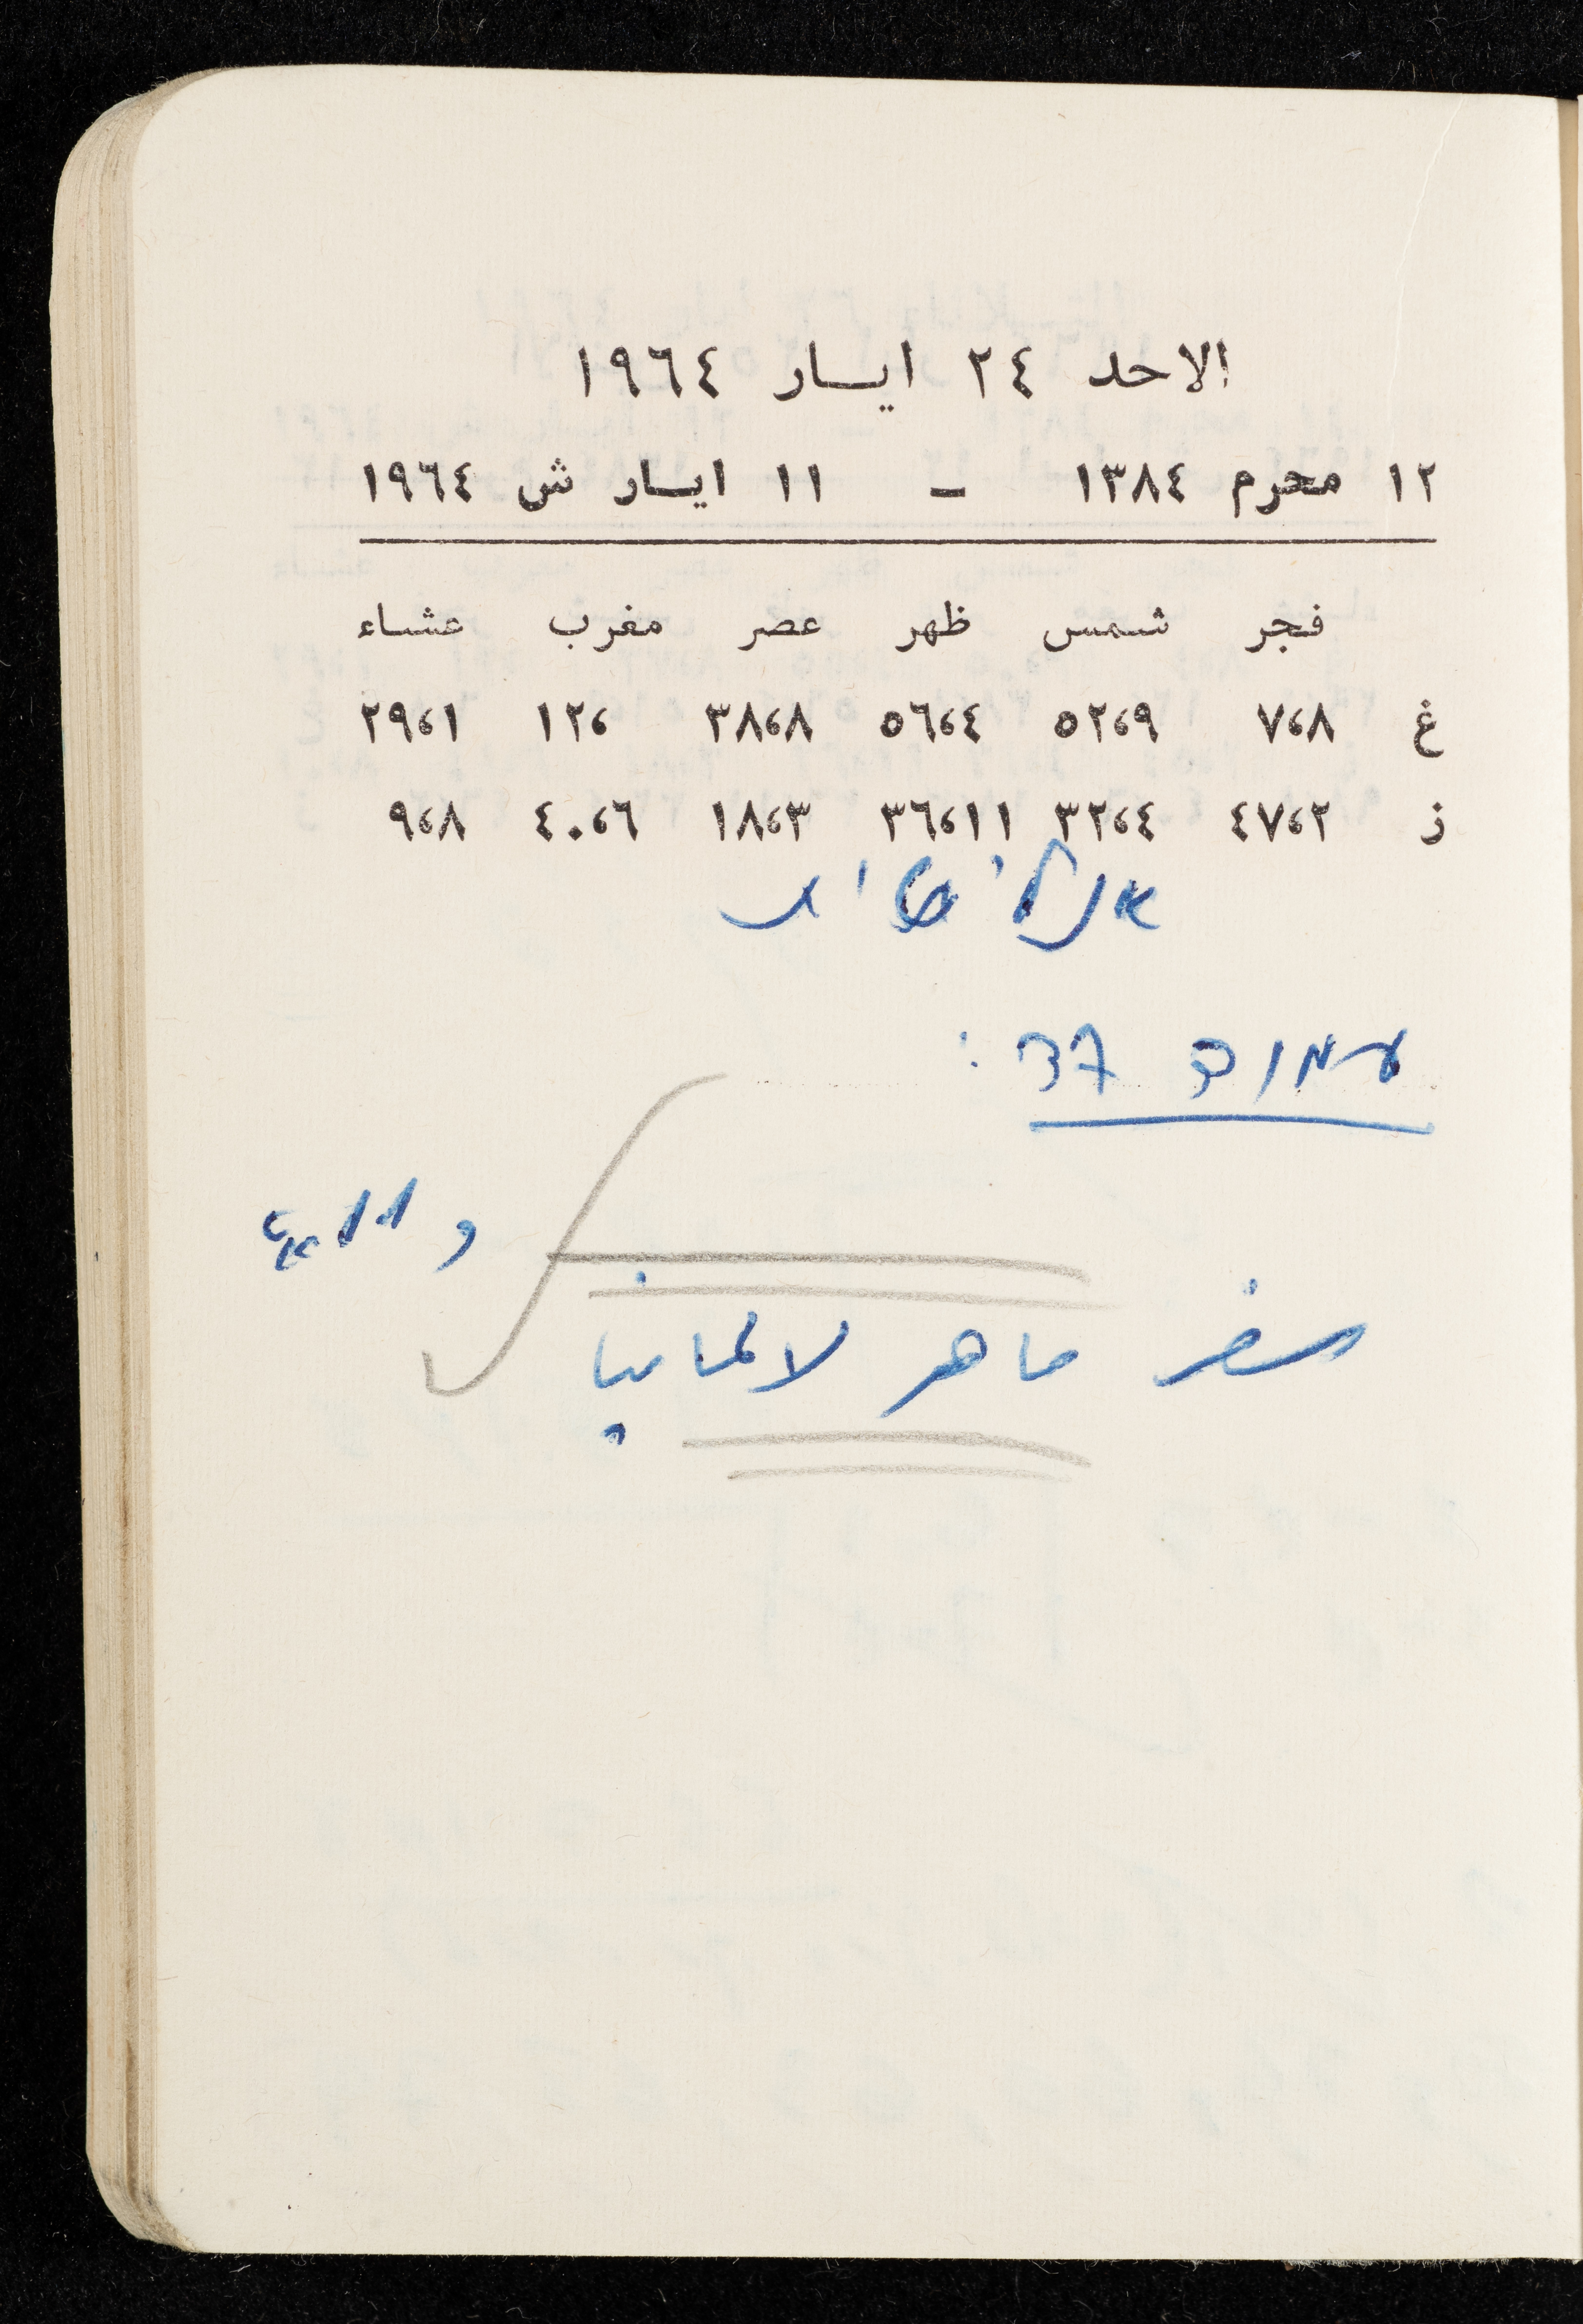 الاحد ٢٤ ايار ١٩٦٤
١٢ محرم ١٣٨٤ - ١١ ايار ش ١٩٦٤
فجر شمس ظهر عصر مغرب عشاء
غ ٧،٨ ٥٢،٩ ٥٦،٤ ٣٨،٨ ١٢، ٢٩،١
ز ٤٧،٢ ٣٢،٤ ٣٦،١١ ١٨،٣ ٤٠،٦ ٩،٨
אנליטית
עמוד 37:
سفر ماهر لالمانيا